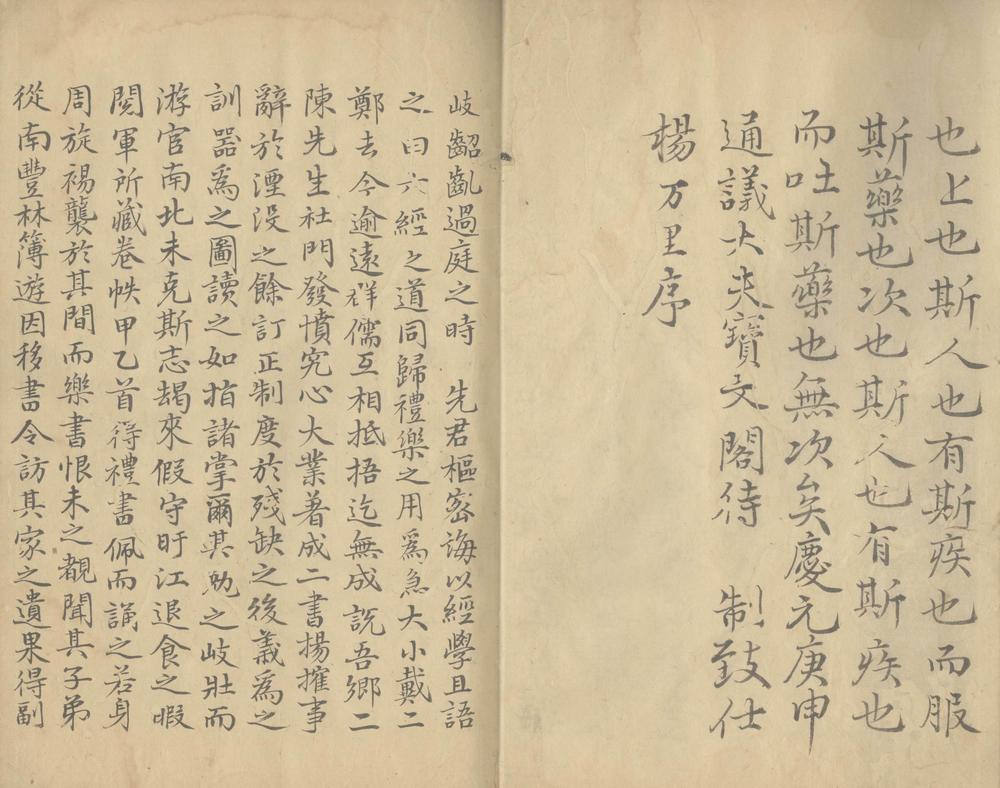 也上也斯人也有斯疾也而服
斯藥也次也斯人也有斯疾也
而吐斯藥也無次矣慶元庚申
通議大夫寶文閣待 制致仕
楊万里序
岐齠齔過庭之時 先君樞密誨以經學且語
之曰六經之道同歸禮樂之用為急大小戴二
鄭去今逾遠群儒互相抵捂迄無成說吾鄉二
陳先生杜門發憤究心大業著成二書揚搉事
辭於湮没之餘訂正制度於殘缺之後義為之
訓器為之圖讀之如指諸掌爾其勉之岐壯而
游官南北未克斯志朅來假守盱江退食之暇
閱軍所藏卷帙甲乙首得禮書佩而誦之若身
周旋裼襲於其間而樂書恨未之覩聞其子弟
從南豐林簿遊因移書令訪其家之遺果得副